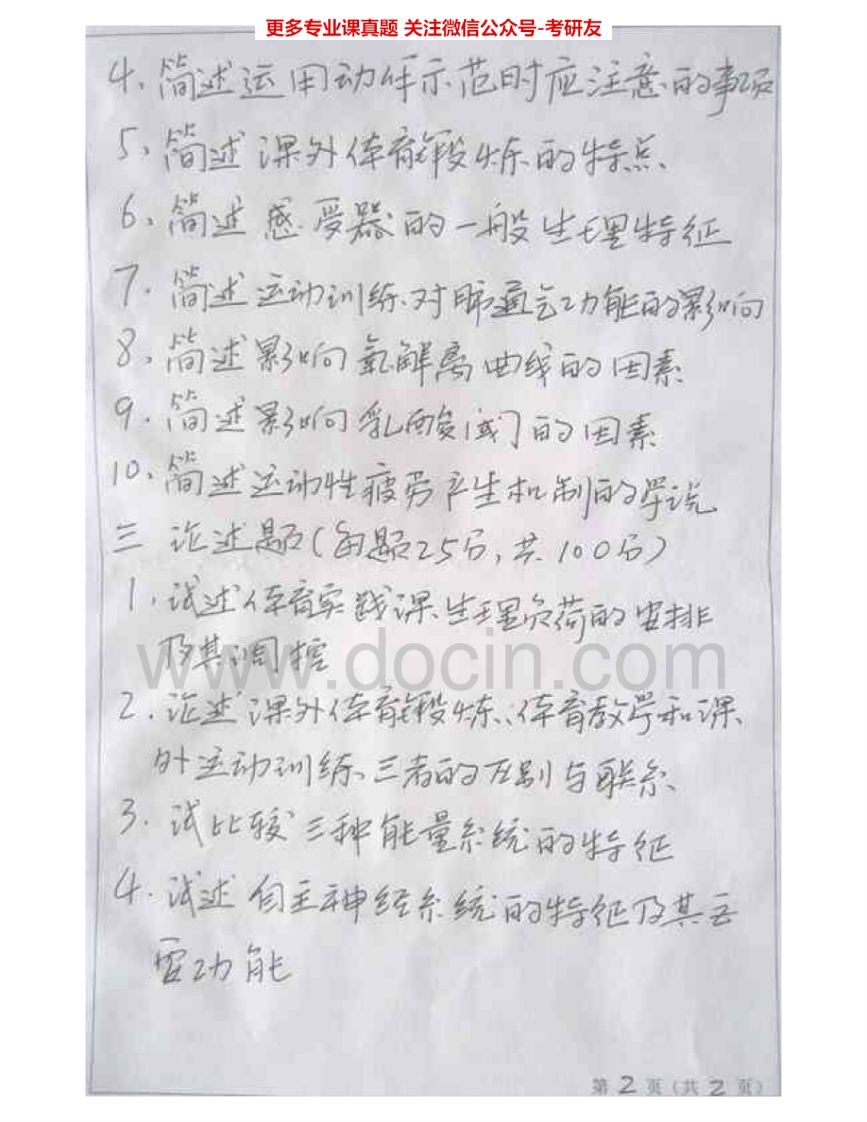 更多专业课真题 关注微信公众号-考研友
4、简述运用动作示范时应注意的事项
5、简述课外体育锻炼的特点
6、简述感受器的一般生理特征
7、简述运动训练对肺通气功能的影响
8、简述影响氧解离曲线的因素
9、简述影响乳酸阈的因素
10、简述运动性疲劳产生机制的学说
三 论述题(每题25分,共100分)
1、试述体育实践课生理负荷的安排
及其调控
www.docin.com
2、论述课外体育锻炼、体育教学和课
外运动训练三者的区别与联系
3、试比较三种能量系统的特征
4、试述自主神经系统的特征及其主
要功能
第2页(共2页)